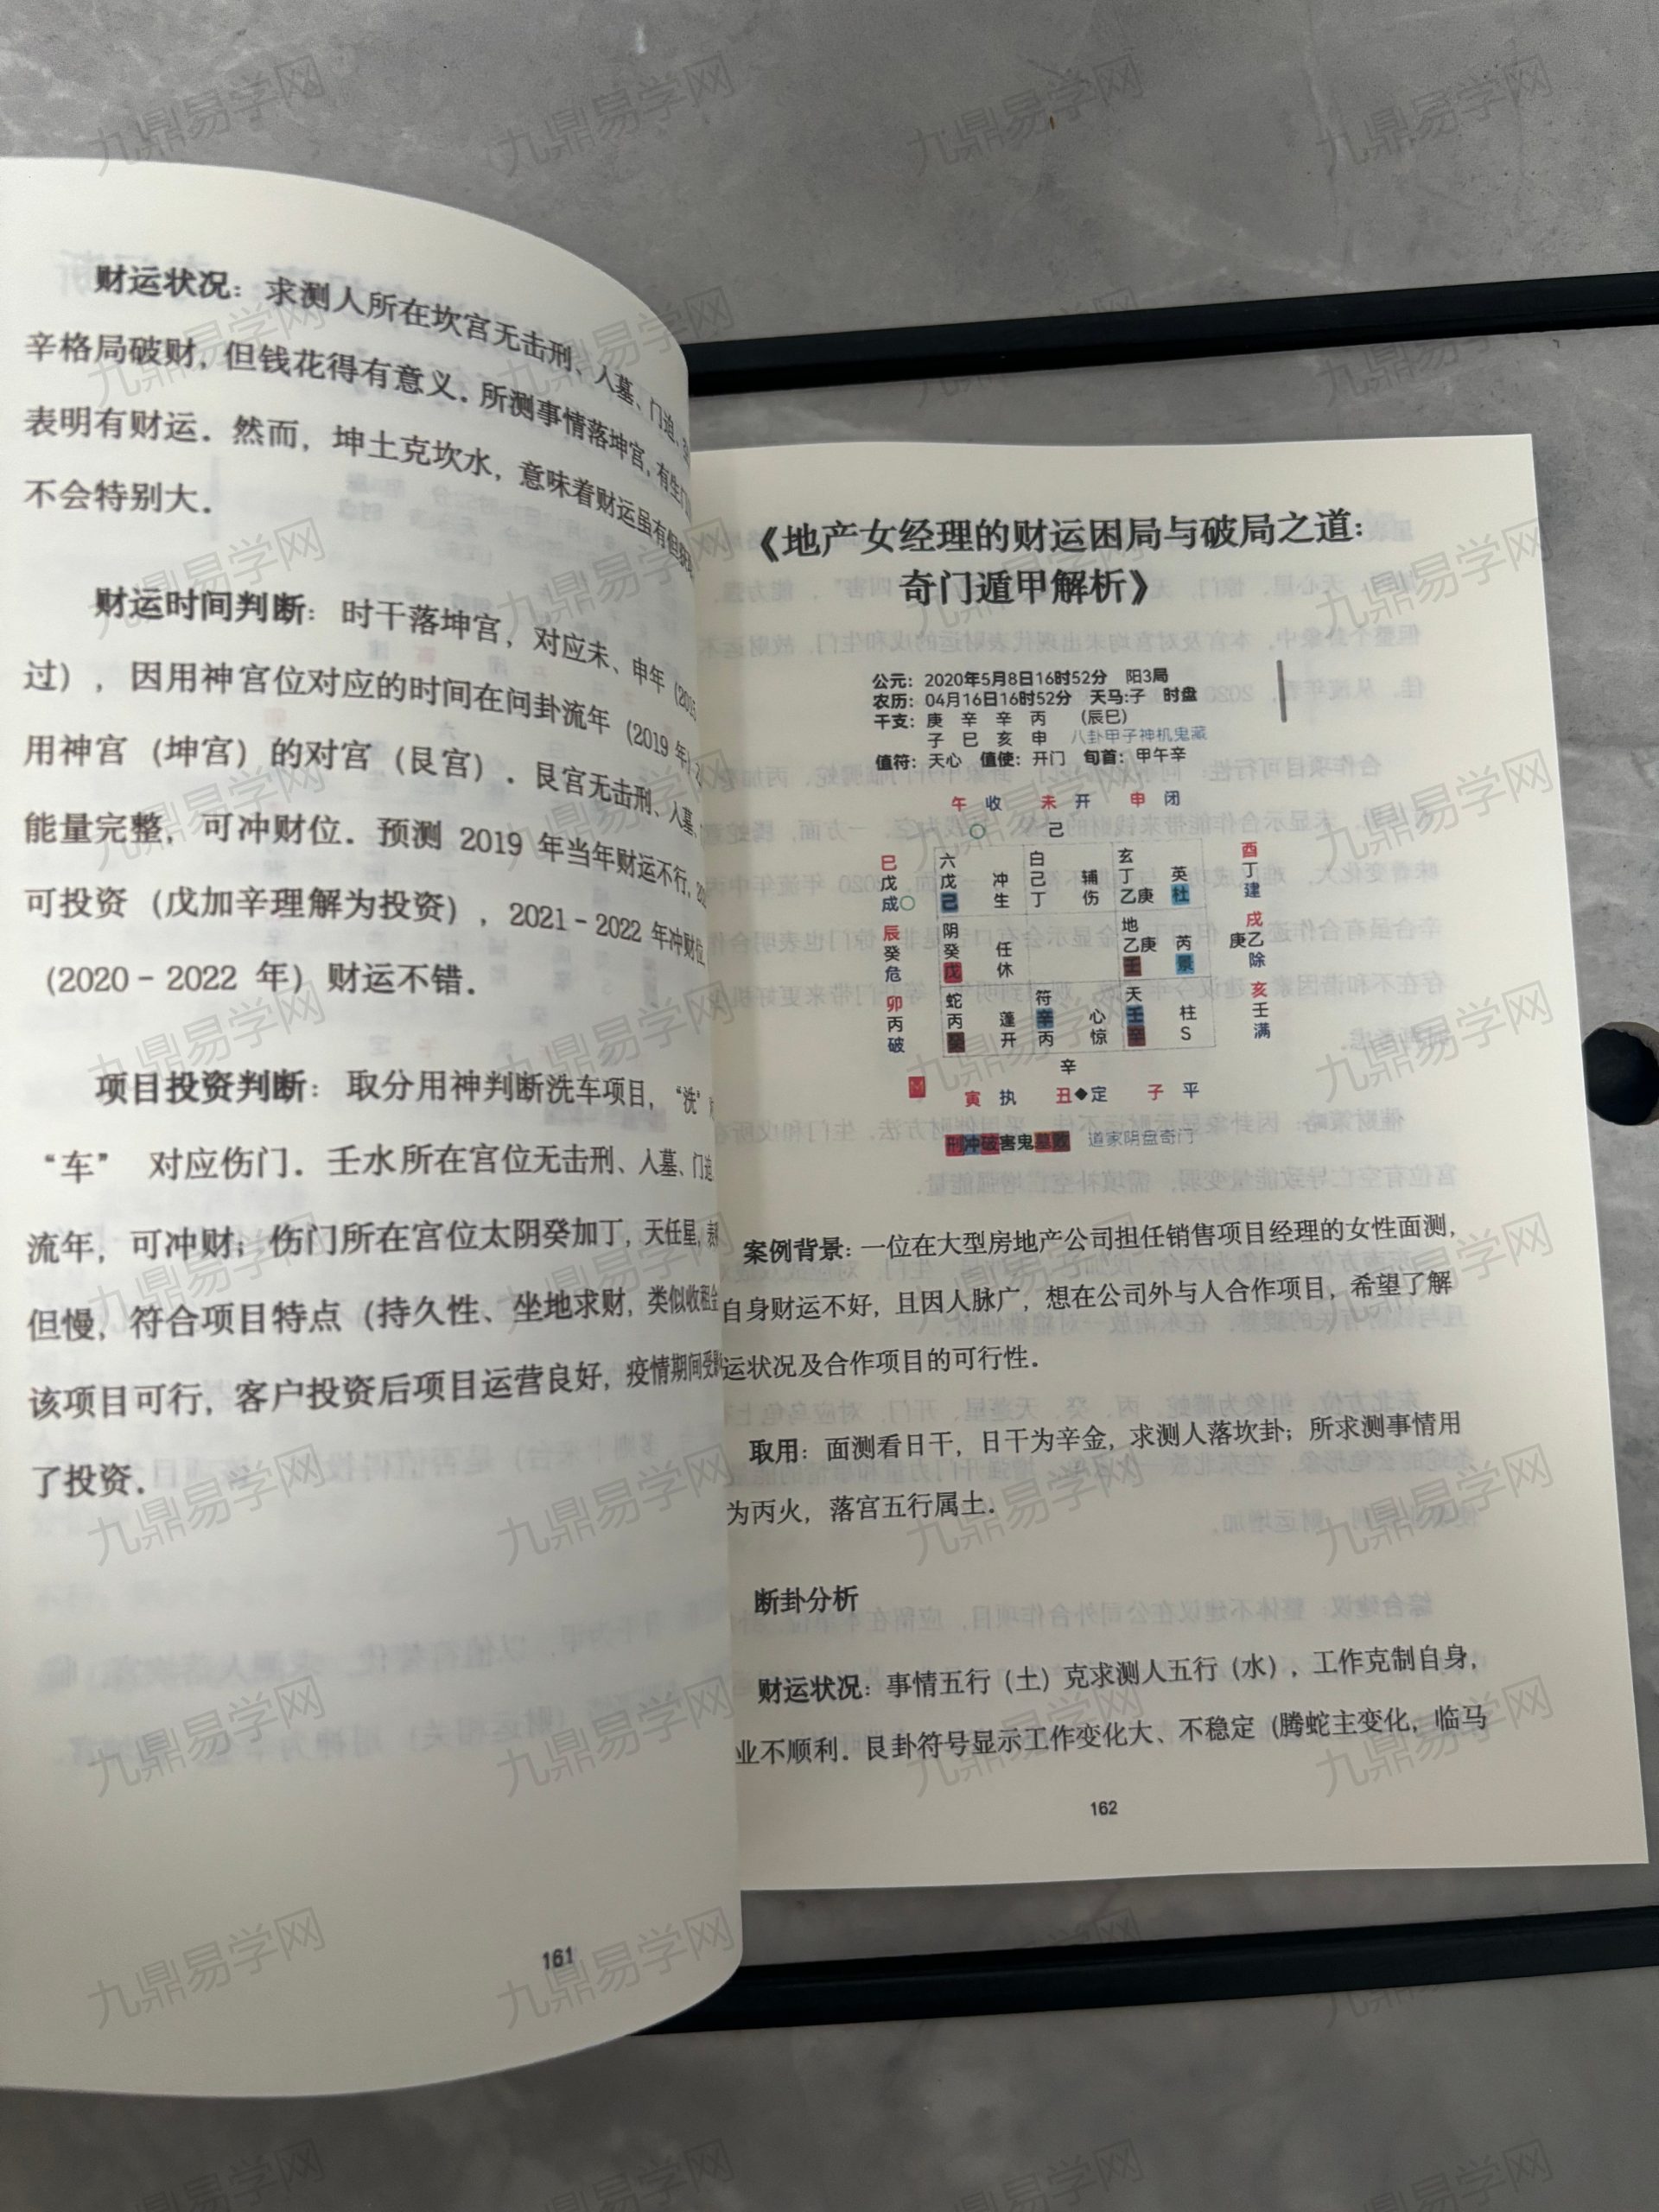 财运状况：求测人所在坎宫无击刑、入墓、门迫、
辛格局破财，但钱花得有意义．所测事情落坤宫，有生门
表明有财运．然而，坤土克坎水，意味着财运虽有但
不会特别大．
财运时间判断：时干落坤宫，对应未、申年（2015
过），因用神宫位对应的时间在问卦流年（2019 年）
用神宫（坤宫）的对宫（艮宫）．艮宫无击刑、入墓、
能量完整，可冲财位．预测 2019 年当年财运不行，
可投资（戊加辛理解为投资），2021－2022 年冲财位
（2020－2022 年）财运不错．
项目投资判断：取分用神判断洗车项目，“洗”
“车” 对应伤门．壬水所在宫位无击刑、入墓、门迫
流年，可冲财；伤门所在宫位太阴癸加丁，天任星，表
但慢，符合项目特点（持久性、坐地求财，类似收租金
该项目可行，客户投资后项目运营良好，疫情期间受
了投资．
161
《地产女经理的财运困局与破局之道：
奇门遁甲解析》
公元：2020年5月8日16时52分 阳3局
农历：04月16日16时52分 天马:子 时盘
干支：庚 辛 辛 丙 （辰巳）
子 巳 亥 申 八卦甲子神机鬼藏
值符：天心 值使：开门 旬首：甲午辛
午 收 未 开 申 闭
己
巳 六 白 玄 酉
戊 戊 冲 己 辅 丁 英 丁
成 己 生 丁 伤 乙庚 杜 建
辰 阴 地 戌
癸 癸 任 乙庚 芮 庚乙
危 戊 休 壬 景 除
卯 蛇 符 天 亥
丙 丙 蓬 辛 心 壬 柱 壬
破 癸 开 丙 惊 辛 S 满
辛
寅 执 丑◆定 子 平
刑冲破害鬼墓败 道家阴盘奇门
案例背景：一位在大型房地产公司担任销售项目经理的女性面测，
自身财运不好，且因人脉广，想在公司外与人合作项目，希望了解
运状况及合作项目的可行性．
取用：面测看日干，日干为辛金，求测人落坎卦；所求测事情用
为丙火，落宫五行属土．
断卦分析
财运状况：事情五行（土）克求测人五行（水），工作克制自身，
业不顺利．艮卦符号显示工作变化大、不稳定（腾蛇主变化，临马
162
九鼎易学网